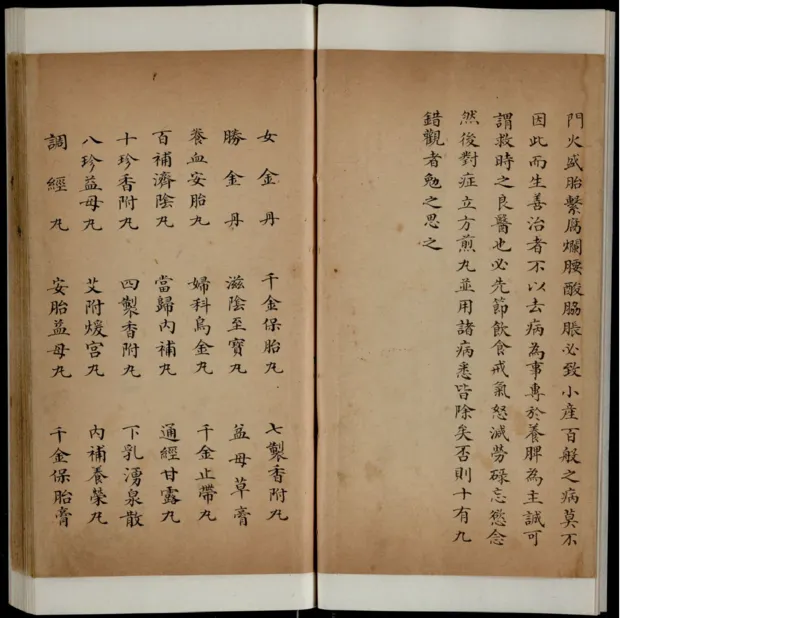 門火盛胎繫腐爛腰酸脇脹必致小產百般之病莫不
因此而生善治者不以去病為事專於養脾為主誠可
謂救時之良醫也必先節飲食戒氣怒減勞碌忘慾念
然後對症立方煎丸並用諸病悉皆除矣否則十有九
錯觀者勉之思之
女金丹 千金保胎丸 七製香附丸
勝金丹 滋陰至寶丸 益母草膏
養血安胎丸 婦科烏金丸 千金止帶丸
百補濟陰丸 當歸內補丸 通經甘露丸
十珍香附丸 四製香附丸 下乳湧泉散
八珍益母丸 艾附煖宮丸 內補養榮丸
調經丸 安胎益母丸 千金保胎膏